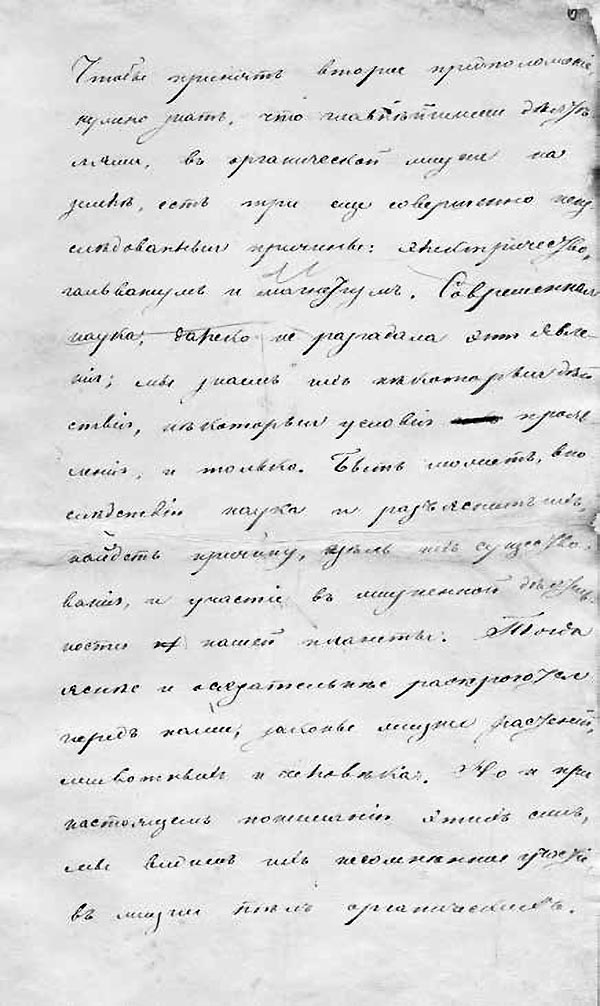 Чтобы принять второе предположеніе,
нужно знать, что главнѣйшими дѣяте
лями, въ органической жизни на
землѣ, есть три еще совершенно неиз
слѣдованныя причины: электричество,
гальванизмъ и магнетизмъ. Современная
наука, далеко не разгадала эти явле
нія; мы знаемъ ихъ нѣкоторыя дѣй
ствія, нѣкоторыя условія прояв
ленія, и только. Быть можетъ, впо
слѣдствіи наука и разъяснитъ ихъ,
найдетъ причину, цѣль ихъ существо
ванія, и участіе въ жизненной дѣятель
ности нашей планеты. Тогда
яснѣе и осязательнѣе раскроются
передъ нами, законы жизни растеній,
животныхъ и человѣка. Но и при
настоящемъ пониманіи этихъ силъ,
мы видимъ ихъ несомнѣнное участіе
въ жизни тѣлъ органическихъ.